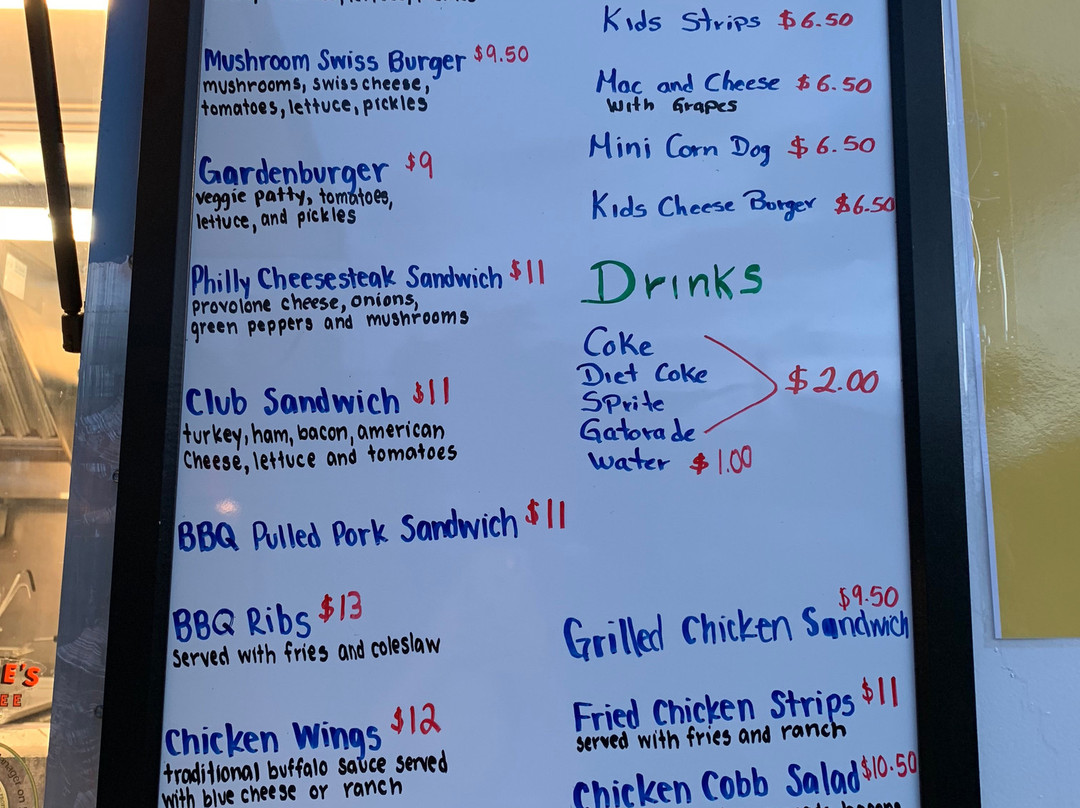 Mushroom Swiss Burger $9.50
mushrooms, swiss cheese,
tomatoes, lettuce, pickles
Gardenburger $9
veggie patty, tomatoes,
lettuce, and pickles
Philly Cheesesteak Sandwich $11
provolone cheese, onions,
green peppers and mushrooms
Club Sandwich $11
turkey, ham, bacon, american
Cheese, lettuce and tomatoes
BBQ Pulled Pork Sandwich $11
BBQ Ribs $13
served with fries and coleslaw
Chicken Wings $12
traditional buffalo sauce served
with blue cheese or ranch
Kids Strips $6.50
Mac and Cheese $6.50
with Grapes
Mini Corn Dog $6.50
Kids Cheese Burger $6.50
Drinks
Coke
Diet Coke
Sprite
Gatorade
$2.00
Water $1.00
$9.50
Grilled Chicken Sandwich
Fried Chicken Strips $11
served with fries and ranch
Chicken Cobb Salad $10.50
E'S
EE